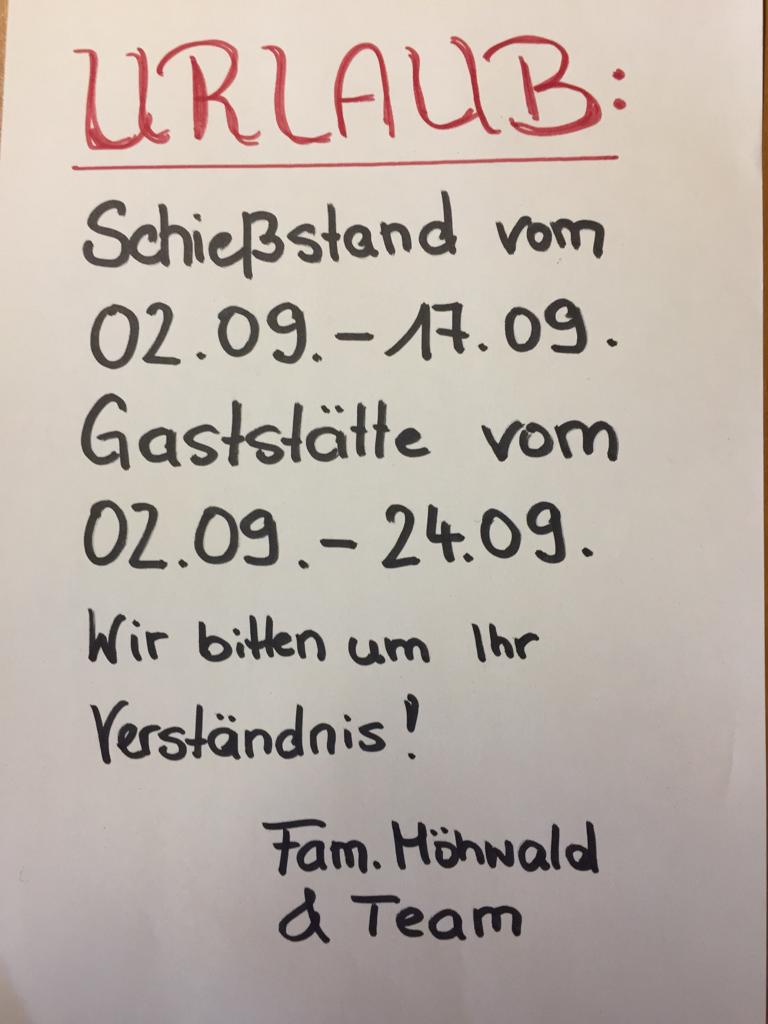 URLAUB:
Schießstand vom
02.09. - 17.09.
Gaststätte vom
02.09. - 24.09.
Wir bitten um Ihr
Verständnis!
Fam. Höhwald
& Team